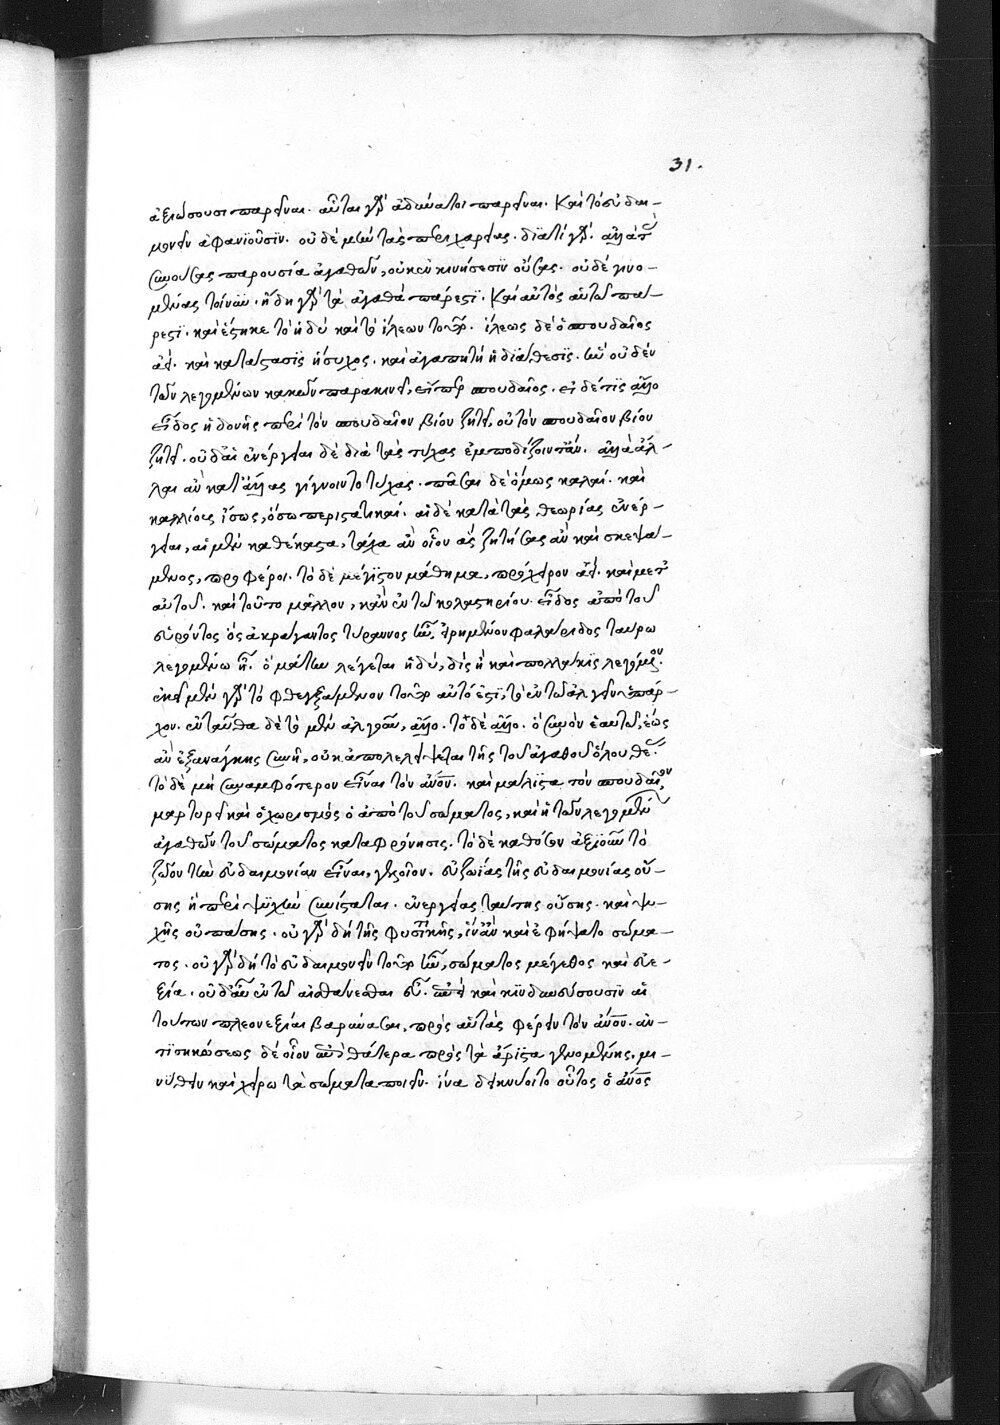 ἀξιώσουσι παρεῖναι. αὗται γὰρ ἀδύνατοι παρεῖναι. Καὶ τὸ εὐδαι-
μονεῖν ἀφανϊοῦσϊν. οὐδὲ μὴν τὰς περιχαρίας. δϊατί γάρ. ἀλλὰ τὰς
συνούσας παρουσία ἀγαθῶν, οὐκ ἐν κινήσεσϊν οὔσας. οὐδὲ γινο-
μένας τοίνυν. ἤδη γὰρ τὰ ἀγαθὰ πάρεστϊ. Καὶ αὐτὸς αὑτῶ πά-
ρεστϊ. καὶ ἕστηκε τὸ ἡδὺ καὶ τὸ ἵλεων τοῦτο. ἵλεως δὲ ὁ σπουδαῖος
ἀεί. καὶ κατάστασϊς ἥσυχος. καὶ ἀγαπητὴ ἡ δϊάθεσϊς. ἣν οὐδὲν
τῶν λεγομένων κακῶν παρακινεῖ, εἴπερ σπουδαῖος. εἰ δέ τϊς ἄλλο
εἶδος ἡδονῆς περὶ τὸν σπουδαῖον βίον ζητεῖ, οὐ τὸν σπουδαῖον βίον
ζητεῖ. οὐδ' αἱ ἐνέργειαι δὲ διὰ τὰς τύχας ἐμποδίζοιντ' ἄν. ἀλλὰ ἄλ-
λαι ἂν κατ' ἄλλας γίγνοιντο τύχας. πᾶσαι δὲ ὅμως καλαί. καὶ
καλλίους ἴσως, ὅσω περιστατικαί. αἱ δὲ κατὰ τὰς θεωρίας ἐνέρ-
γειαι, αἱ μὲν καθέκαστα, τάχα ἂν οἷον ἃς ζητήσας ἂν καὶ σκεψά-
μενος, προφέροι. τὸ δὲ μέγϊστον μάθημα, πρόχειρον ἀεί. καὶ μετ'
αὐτοῦ. καὶ τοῦτο μᾶλλον, κἂν ἐν τῶ κολαστηρίου εἶδος ἀπὸ τοῦ
εὑρόντος ὃς ἀκράγαντος τύραννος ἦν, εἰρημένον φαλάριδος ταύρω
λεγομένω ῆ. ὁ μάτην λέγεται ἡδὺ, δὶς ἢ καὶ πολλάκϊς λεγόμενον.
ἐκεῖ μὲν γὰρ τὸ φθεγξάμενον τοῦτο αὐτό ἐστϊ, τὸ ἐν τῶ ἀλγεῖν ὑπάρ-
χον. ἐνταῦθα δὲ τὸ μὲν ἀλγοῦν, ἄλλο. τὸ δὲ ἄλλο. ὃ συνὸν ἑαυτῶ, ἕως
ἂν ἐξανάγκης συνῆ, οὐκ ἀπολελείψεται τῆς τοῦ ἀγαθοῦ ὅλου θέας.
τὸ δὲ μὴ συναμφότερον εἶναι τὸν ἄνον. καὶ μάλϊστα τὸν σπουδαῖον,
μαρτυρεῖ καὶ ὁ χωρισμὸς ὁ ἀπὸ τοῦ σώματος, καὶ ἡ τῶν λεγομένων
ἀγαθῶν τοῦ σώματος καταφρόνησις. τὸ δὲ καθόσον ἀξϊοῦν τὸ
ζῶον τὴν εὐδαιμονίαν εἶναι, γελοῖον. εὐζωΐας τῆς εὐδαιμονίας οὔ-
σης ἣ περὶ ψυχὴν συνίσταται. ἐνεργείας ταύτης οὔσης. καὶ ψυ-
χῆς οὐ πάσης. οὐ γὰρ δὴ τῆς φυτϊκῆς, ἵν' ἂν καὶ ἐφήψατο σώμα-
τος. οὐ γὰρ δὴ τὸ εὐδαιμονεῖν τοῦτο ἦν, σώματος μέγεθος καὶ εὐε-
ξία. οὐδ' αὖ ἐν τῶ αἰσθάνεσθαι εὖ. καὶ κϊνδυνεύσουσϊν αἱ
τούτων πλεονεξίαι βαρύνασαι, πρὸς αὑτὰς φέρειν τὸν ἄνον. ἀν-
τϊσηκώσεως δὲ οἷον ἐπὶ θάτερα πρὸς τὰ ἄρϊστα γενομένης, μι-
νύθειν καὶ χείρω τὰ σώματα ποιεῖν. ἵνα δεικνύοιτο οὗτος ὁ ἄνος